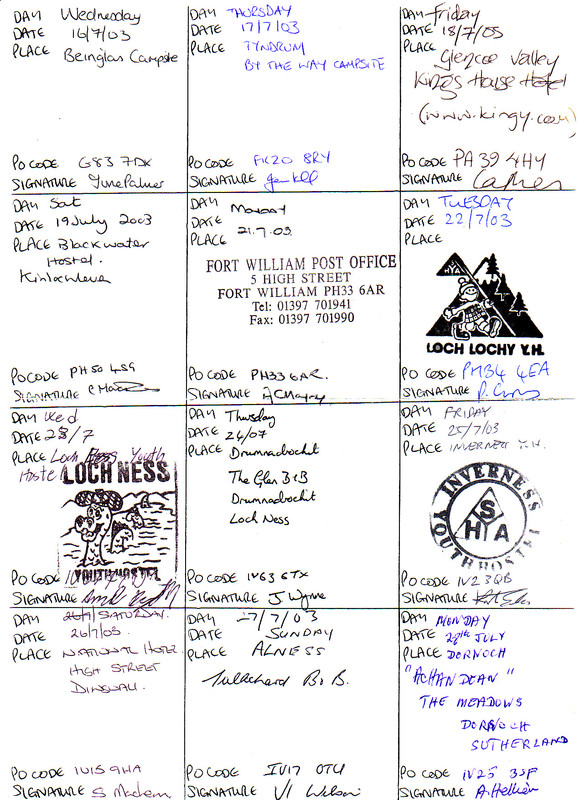 DAY Wednesday
DATE 16/7/03
PLACE
Beinglas Campsite
PO CODE G83 7DX
SIGNATURE June Palmer
DAY THURSDAY
DATE 17/7/03
PLACE TYNDRUM
BY THE WAY CAMPSITE
PO CODE FK20 8RY
SIGNATURE
DAY Friday
DATE 18/7/03
PLACE
Glencoe Valley
Kings House Hotel
(www.kingy.com)
PO CODE PA39 4HY
SIGNATURE
DAY Sat
DATE 19 July 2003
PLACE Blackwater
Hostel.
Kinlochleven
PO CODE PH50 4SG
SIGNATURE
DAY Monday
DATE
PLACE 21.7.03.
FORT WILLIAM POST OFFICE
5 HIGH STREET
FORT WILLIAM PH33 6AR
Tel: 01397 701941
Fax: 01397 701990
PO CODE PH33 6AR.
SIGNATURE
DAY TUESDAY
DATE 22/7/03
PLACE
SYHA
LOCH LOCHY Y.H.
PO CODE PH34 4EA
SIGNATURE
DAY Wed
DATE 23/7
PLACE Loch Ness Youth
Hostel
LOCH NESS
YOUTH HOSTEL
PO CODE
SIGNATURE
DAY Thursday
DATE 24/07
PLACE Drumnadrochit
The Glen B&B
Drumnadrochit
Loch Ness
PO CODE IV63 6TX
SIGNATURE J Wynne
DAY FRIDAY
DATE 25/7/03
PLACE INVERNESS Y.H.
INVERNESS
SYHA
YOUTH HOSTEL
PO CODE IV2 3QB
SIGNATURE
DAY 26/7 SATURDAY.
DATE 26/7/03.
PLACE NATIONAL HOTEL
HIGH STREET
DINGWALL.
PO CODE IV15 9HA
SIGNATURE
DAY 27/7/03
DATE SUNDAY
PLACE ALNESS
Tullochard B.B.
PO CODE IV17 0TU
SIGNATURE
DAY MONDAY
DATE 28th JULY
PLACE DORNOCH
"ACHANDEAN"
THE MEADOWS
DORNOCH
SUTHERLAND
PO CODE IV25 3SF
SIGNATURE A. Hellier